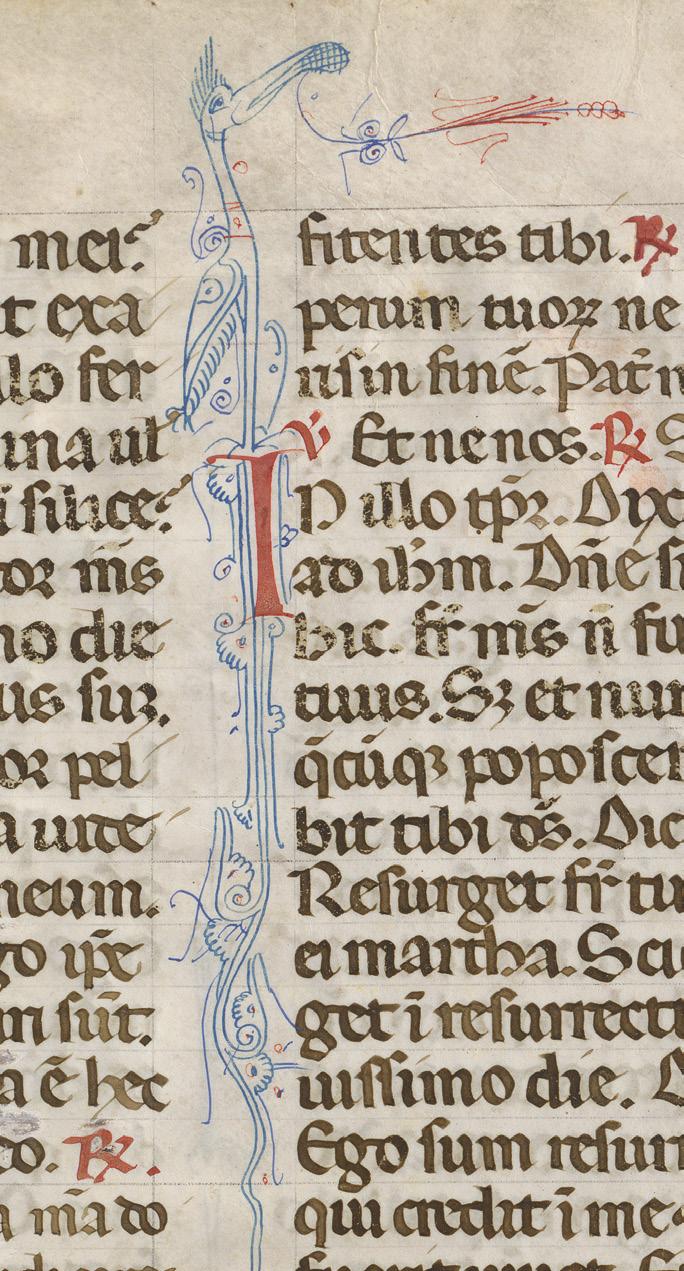 mei?
t exa
llo fer
una ul
i silice?
tor m̄s
mo die
us suꝫ.
or pel
a uite
meum.
go ip̄e
sūt.
a ē hec
eo. ℟.
a m̄a do
fitentes tibi. ℟
perum tuoꝝ ne
ris in finē. Pat̄
℣. Et ne nos. ℟ S
In illo tp̄ꝛ. Dix
ad ih̄m. Dn̄e si
hic. fr̄ m̄s n̄ fu
tuus. Sꝫ et nun
q̄cūqꝫ poposcer
bit tibi ds̄. Dic
Resurget fr̄ tu
ei martha. Sci
get ī resurrecti
uissimo die. 
Ego sum resurr
qui credit ī me